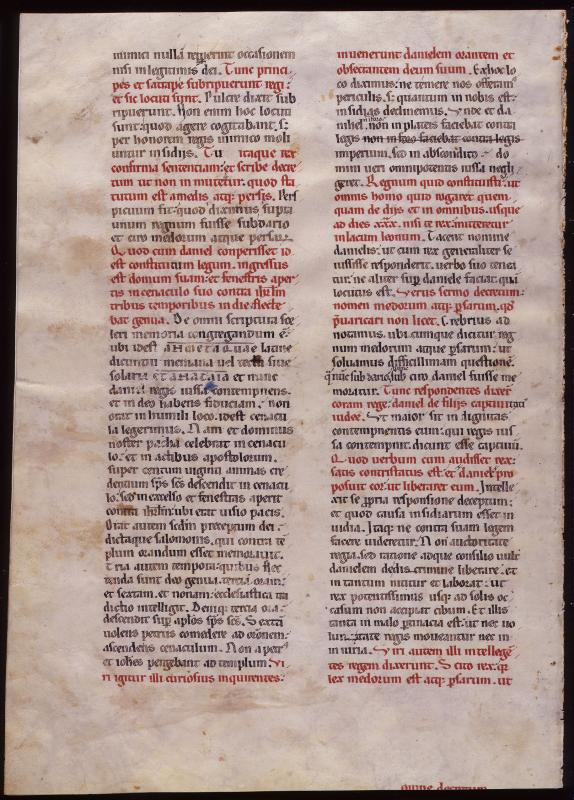 inimici nullā reppeɼint occasionem
nisi in legitimis dei. Tunc princi
pes et satrape subripuerunt regi:
et sic locuti sunt. Pulcre dixit sub
ripuerunt. Non enim hoc locuti
sunt: quod agere cogitabant. s;
per honorem regis inimico moli
untur insidijs. Tu itaque rex
confirma sentenciam: et scribe decre
tum ut non in mutetur. quod sta
tutum est amedis atq; persis. Pers
picuum sit quod diximus supra
unum regnum fuisse sub dario
et ciro medorum atque persarū
Quod cum daniel conperisset id
est constitutum legum. ingressus
est domum suam: et fenestris aper
tis in cenaculo suo contra ihrlm
tribus temporibus in die flecte
bat genua. De omni scriptura sce
leri memoria congregandum ē:
ubi idest latine
dicuntur meniana vel tecta sive
solaria et nunc
daniel regis iussa contempnens.
et in deo habens fiduciam. non
orat in humili loco. idest cenacu
la legerimus. Nam et dominus
noster pacha celebrat in cenacu
lo: et in actibus apostolorum.
super centum uiginti animas cre
dentium sps scs descendit in cenacu
lo. sed in excelso et fenestras aperit
contra ihrlm: ubi erat uisio pacis.
Orat autem secundum preceptum dei.
dictaque salomonis. qui contra te
plum orandum esset memorauit.
Tria autem tempora: quibus flec
tenda sunt deo genua. tercia orā:
et sextam. et nonam: ecclesiastica tra
dictio intelligit. Deniq; tercia ora.
descendit sup aplos sps scs. Sexta
uolens petrus comedere ad orōnem
ascendens cenaculum. Nona petrꝰ
et iohes pergebant ad templum. Vi
ri igitur illi curiosius inquirentes:
inuenerunt danielem orantem et
obsecrantem deum suum. Ex hoc lo
co diximus: ne temere nos offeram
periculis. s; quantum in nobis est:
insidias declinemus. Vnde et da
nihel non in plateis faciebat contra
legis non in foro faciebat contra legis
imperium. sed in abscondito. do
mini ueri omnipotentis iussa negli
geret. Regnum quid constituisti: ut
omnis homo qui rogaret quem
quam de dijs et in omnibus. usque
ad dies xxx. nisi te rex: mitteretur
in lacum leonum. Tacent nomine
danielis: ut cum rex generaliter se
iussisse responderit. uerbo suo tenea
tur. ne aliter sup daniele faciat: quā
locutus est. Verus sermo decretum:
nomen medorum atq; psarum. qd
pꝛuaricari non licet. Crebrius ad
notamus. ubi cumque dicitur: reg
num medorum atque psarum: ut
soluamus difficillimam questionē.
quare sub dario sub ciro daniel fuisse me
moratur. Tunc respondentes dixer
coram rege: daniel de filijs captiuitatis
iudee. Ut maior sit in dignitas
contempnentis eum: qui regis ius
sa contempnit: dicunt esse captiuū.
Quod uerbum cum audisset rex:
satis contristatus est. et daniele pro
posuit cor: ut liberaret eum. Intelle
xit se ppria responsione deceptum:
et quod causa insidiarum esset in
uidia. Itaq; ne contra suam legem
facere uideretur. Non auctoritate
regia. sed ratione adque consilio uult
danielem de dis crimine liberare. et
in tantum nititur et laborat: ut
rex potentissimus usq; ad solis oc
casum non accipiat cibum. Et illis
tanta in malo pertinacia est: ut nec uo
luntate regis moueantur nec in
iniuria. Viri autem illi intellege
tes regem dixerunt. Scito rex: q
lex medorum est atq; psarum. ut